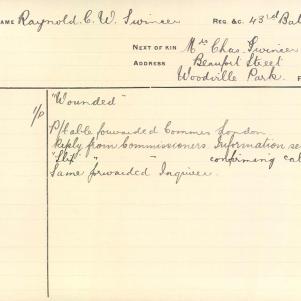 NAME Raynold. C. W. Swincer REG. &C. 43rd Bat
NEXT OF KIN Mrs Chas. Swincer
ADDRESS Beaufort Street
Woodville Park.
1/P "Wounded"
P/table forwarded Commrs London
Reply from Commissioners. Information se
" " confirming cab
Same forwarded Inquirer.